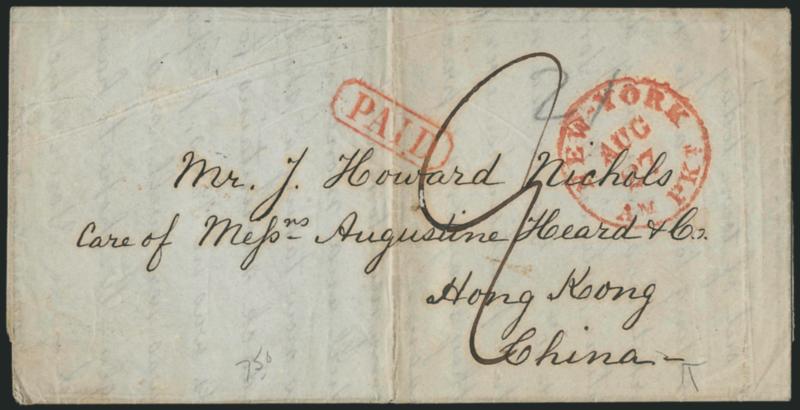 PAID
21
NEW-YORK AM. PKT
AUG
27
Mr. J. Howard Nichols
Care of Meſsrs Augustine Heard & Co.
Hong Kong
China
750